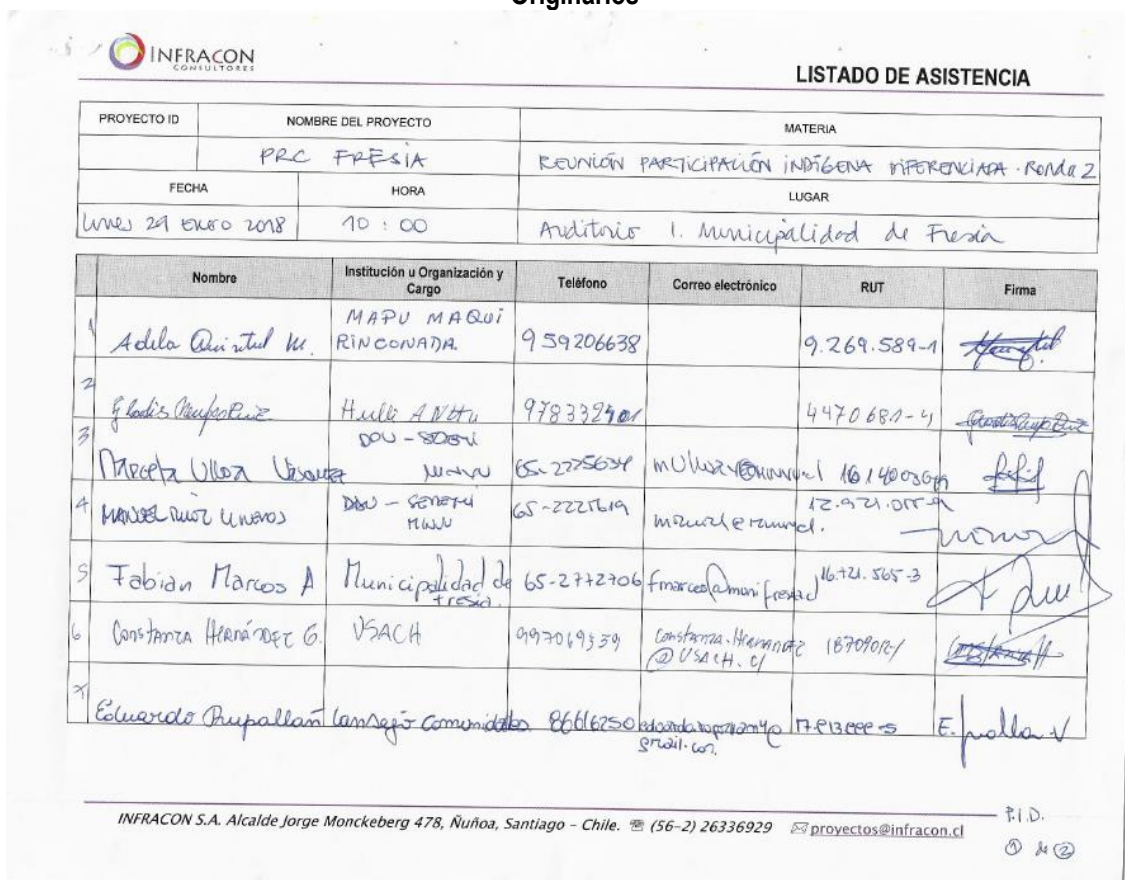 Originarios
INFRACON
CONSULTORES
LISTADO DE ASISTENCIA
PROYECTO ID NOMBRE DEL PROYECTO MATERIA
PRC FRESIA REUNIÓN PARTICIPACIÓN INDÍGENA DIFERENCIADA · Ronda 2
FECHA HORA LUGAR
Lunes 29 enero 2018 10 : 00 Auditorio I. Municipalidad de Fresia
Nombre Institución u Organización y Cargo Teléfono Correo electrónico RUT Firma
1 Adela Quintul M. MAPU MAQUI RINCONADA 9 59206638 9.269.589-1
2 Gladis Ruiz Hulli ANtu 4470681-4
3 Marcela Ulloa Vásquez DDU - MINVU 65-2225634
4 MANUEL RUIZ DDU - MINVU 65-2225619
5 Fabian Marcos A Municipalidad de Fresia. 65-2772706 16.721.565-3
6 Constanza HERNÁNDEZ G. USACH Constanza.Hernandez @USACH.cl
7 Eduardo Rupallan Consejo Comunidades 86616250 gmail.com
INFRACON S.A. Alcalde Jorge Monckeberg 478, Ñuñoa, Santiago – Chile. ☏ (56–2) 26336929 ✉ proyectos@infracon.cl
P.I.D.
① de ②